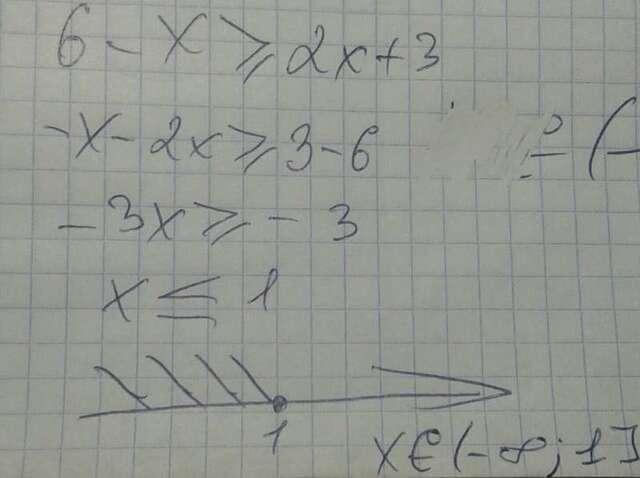 6 - x ⩾ 2x + 3
-x - 2x ⩾ 3 - 6
- 3x ⩾ - 3
x ≤ 1
1
x ∈ (-∞; 1]